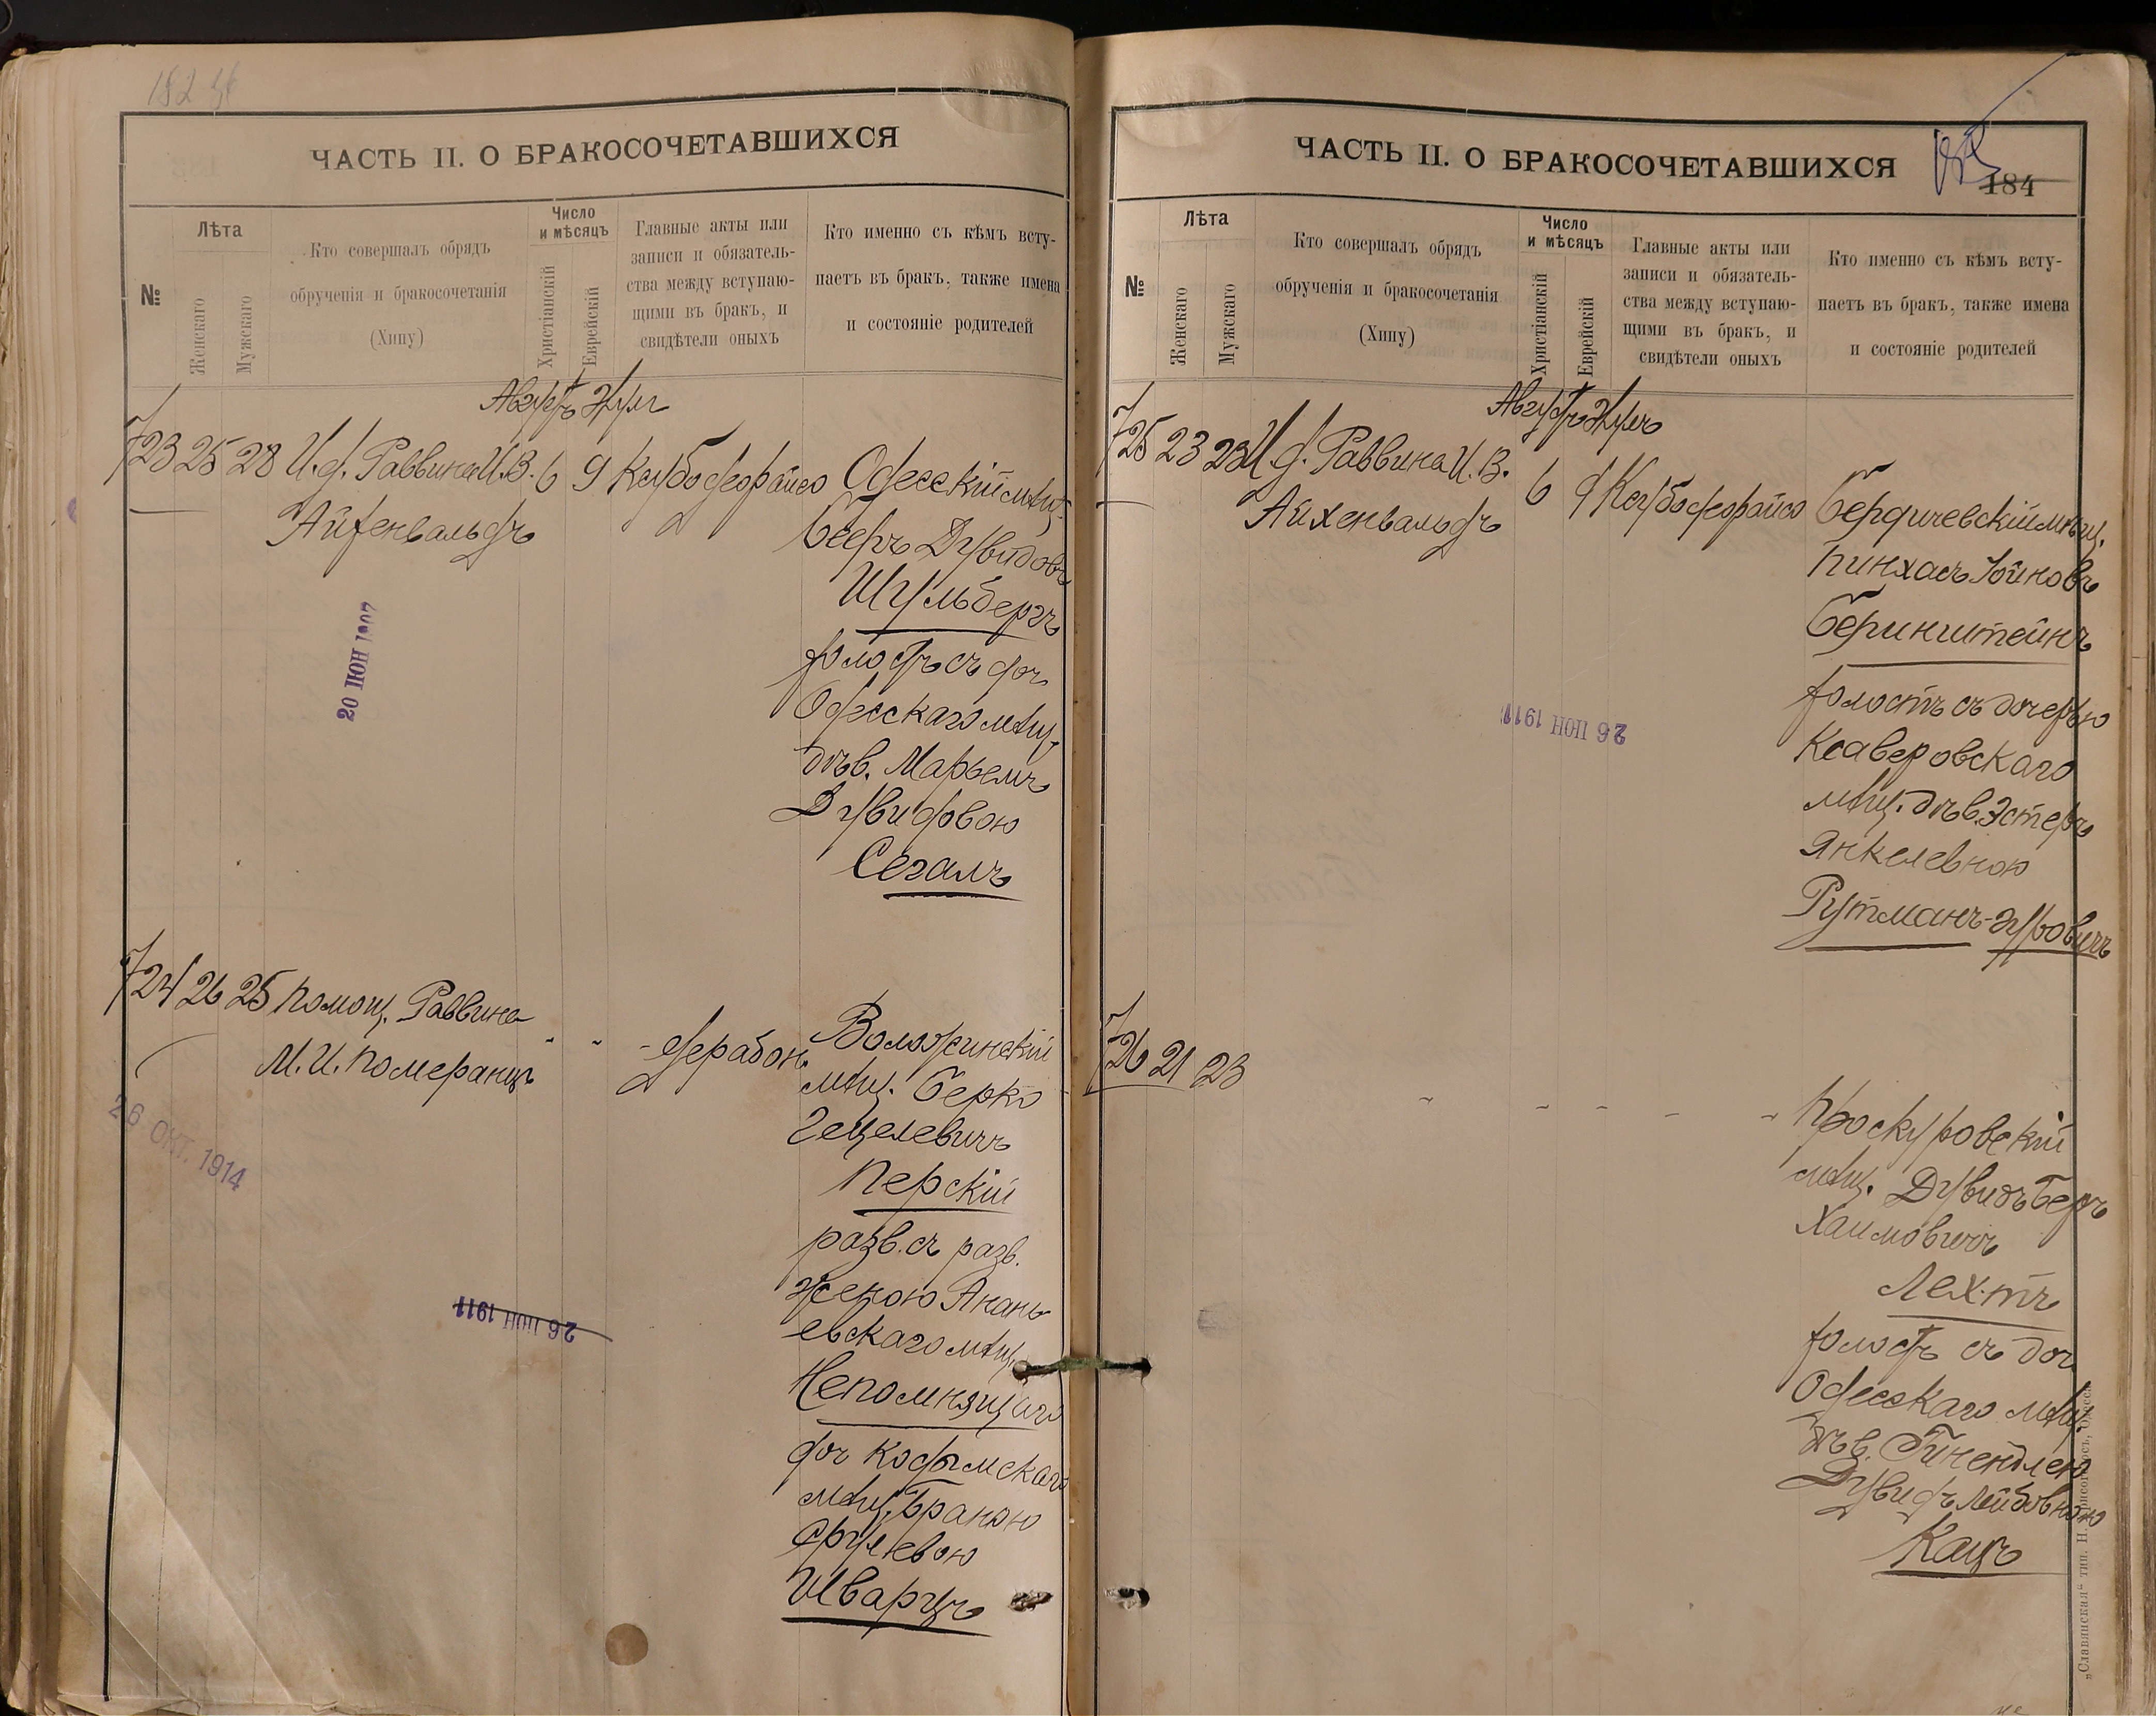 ЧАСТЬ II. О БРАКОСОЧЕТАВШИХСЯ
№
Лѣта
Женскаго
Мужскаго
Кто совершалъ обрядъ
обрученія и бракосочетанія
(Хипу)
Число
и мѣсяцъ
Христіанскій
Еврейскій
Главные акты или
записи и обязатель-
ства между вступаю-
щими въ бракъ, и
свидѣтели оныхъ
Кто именно съ кѣмъ всту-
паетъ въ бракъ, также имена
и состояніе родителей
Августъ
723 25 28 И.д. Раввина И.В. 6 9
Айхенвальдъ
Одесскій мѣщ.
Бееръ Дувидовъ
Шульбергъ
холостъ съ доч.
Одесскаго мѣщ.
дѣв. Марьемъ
Дувидовою
Сегалъ
20 ІЮН 1907
724 26 25 Помощ. Раввина
М.И. Померанцъ
Воложинскій
мѣщ. Берко
Гецелевичъ
Перскій
разв. съ разв.
женою Анань-
евскаго мѣщ.
Непомнящаго
доч Кодымскаго
мѣщ. Браною
Срулевою
Шварцъ
26 ОКТ. 1914
26 ІЮН 1911
ЧАСТЬ II. О БРАКОСОЧЕТАВШИХСЯ
184
№
Лѣта
Женскаго
Мужскаго
Кто совершалъ обрядъ
обрученія и бракосочетанія
(Хипу)
Число
и мѣсяцъ
Христіанскій
Еврейскій
Главные акты или
записи и обязатель-
ства между вступаю-
щими въ бракъ, и
свидѣтели оныхъ
Кто именно съ кѣмъ всту-
паетъ въ бракъ, также имена
и состояніе родителей
Августъ
725 23 23 И.д. Раввина И.В. 6 9
Айхенвальдъ
Бердичевскій мѣщ.
Пинхасъ Іойновъ
Беринштейнъ
холостъ съ дочерью
Ксаверовскаго
мѣщ. дѣв. Эстеръ
Янкелевною
Рутманъ-Гуровичъ
26 ІЮН 1911
726 21 23
Проскуровскій
мѣщ. Дувидъ Беръ
Хаимовичъ
Лехтъ
холостъ съ доч
Одесскаго мѣщ
дѣв. Гинендлею
Дувидъ Лейбовною
Кацъ